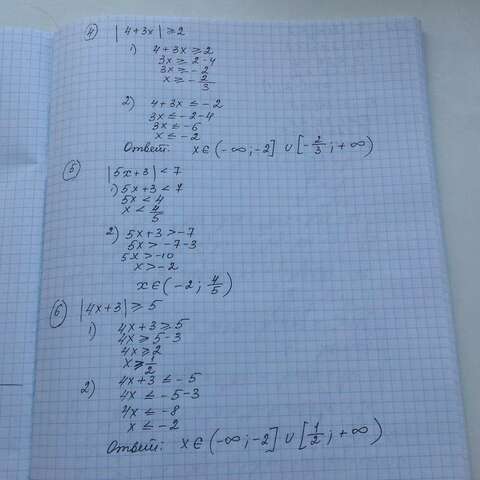 4) |4+3x| ≥ 2
1) 4+3x ≥ 2
3x ≥ 2-4
3x ≥ -2
x ≥ -2/3
2) 4+3x ≤ -2
3x ≤ -2-4
3x ≤ -6
x ≤ -2
Ответ: x ∈ (-∞; -2] ∪ [-2/3; +∞)
5) |5x+3| < 7
1) 5x+3 < 7
5x < 4
x < 4/5
2) 5x+3 > -7
5x > -7-3
5x > -10
x > -2
x ∈ (-2; 4/5)
6) |4x+3| ≥ 5
1) 4x+3 ≥ 5
4x ≥ 5-3
4x ≥ 2
x ≥ 1/2
2) 4x+3 ≤ -5
4x ≤ -5-3
4x ≤ -8
x ≤ -2
Ответ: x ∈ (-∞; -2] ∪ [1/2; +∞)